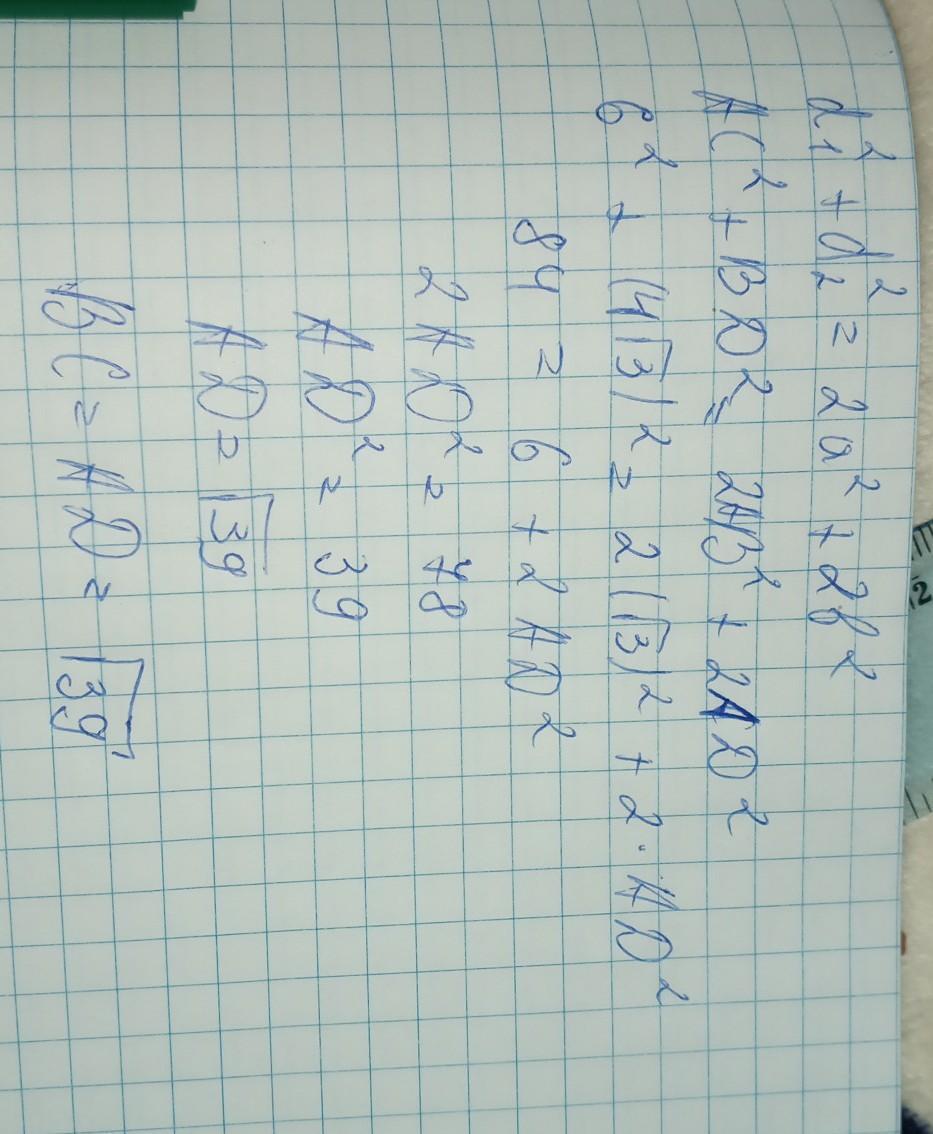 d₁² + d₂² = 2a² + 2b²
AC² + BD² = 2AB² + 2AD²
6² + (4√3)² = 2(√3)² + 2·AD²
84 = 6 + 2AD²
2AD² = 78
AD² = 39
AD = √39
BC = AD = √39
2